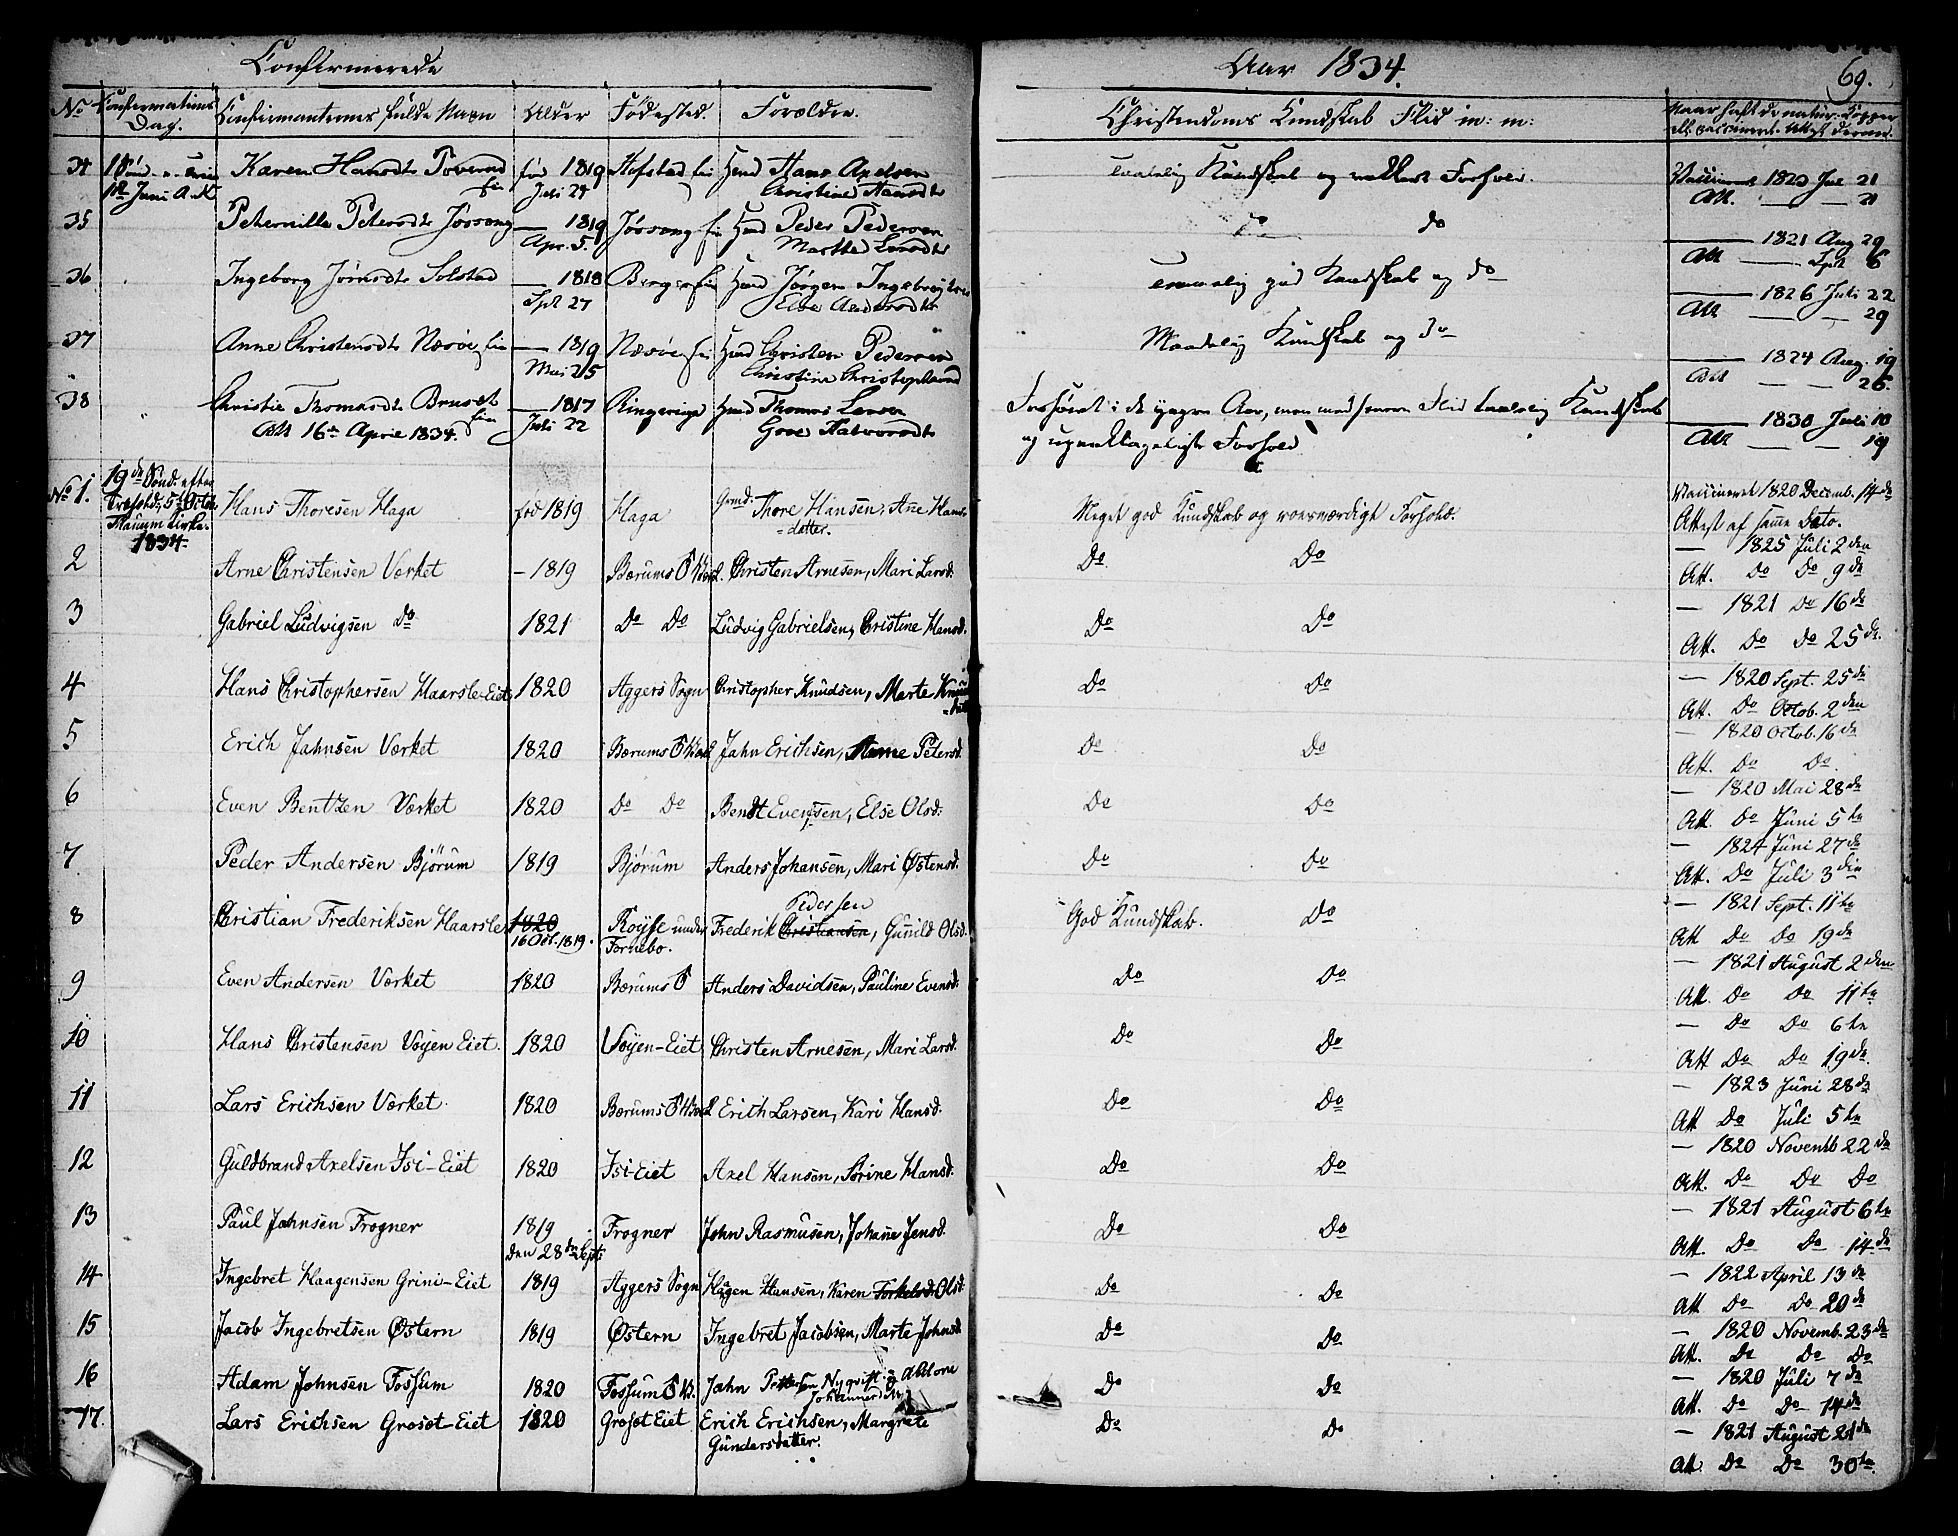 Confirmerede
Aar 1834.
69.
No Confirmations Dag. Confirmanternes fulde Navn Alder Fødested. Forældre. Christendoms Kundskab Flid m: m:
34 Karen Hansdt fød 1819 Hofstad Hans Axelsen Kundskab og Forhold. Vaccineret 1820 Jul 21
1st Juni A K Juli 24 Christine Hansdt Att. — — 21
35 Peternille Petersdt Jossang — 1819 Jossang Peder Pedersen do do — 1821 Aug 29
Apr. 5. Marthe Larsdt Att — Sept 6
36 Ingeborg Jørnsdt Solstad — 1818 Berger Jørgen Ingebrigtsen god Kundskab og do — 1826 Juli 22
Spt 27 Att — — 29
37 Anne Christensdt Næsøe — 1819 Næsøe Christen Pedersen Maadelig Kundskab og Do — 1824 Aug. 19
Mai 25 Christine Christophersd Att — — 26.
38 Christie Thomasdt Bruset — 1817 Ringerige Thomas Larsen Forhøret i de Aar, men med senere Flid Kundskab — 1830 Juli 10
Att 16de April 1834. Juli 22 Gore Halvorsdt og upaaklageligt Forhold Att — — 19
No 1. 19de Sønd. efter Trefold: 5te Octbr. Kirke. 1834. Hans Thoresen Haga fød 1819 Haga Grmd: Thore Hansen, Ane Hans=datter. Meget god Kundskab og roesværdigt Forhold. Vaccineret 1820 Decemb. 14de
Attest af samme Dato.
2 Arne Christensen Værket — 1819 Bærums Værk. Christen Arnesen, Mari Larsd: Do. Do — 1825 Juli 2den
Att. Do Do 9de
3 Gabriel Ludvigsen Do 1821 Do Do Ludvig Gabrielsen, Cristine Hansd. Do Do — 1821 Do 16de
Att. Do Do 25de.
4 Hans Christophersen Haarsle-Eiet 1820 Aggers Sogn Christopher Knudsen, Marte Knuds=datt Do Do — 1820 Sept. 25de
Att. Do Octob. 2den
5 Erich Jahnsen Værket 1820 Bærums Jahn Erichsen, Anne Petersd. Do Do — 1820 Octob. 16de
Att. Do Do.
6 Even Bentzen Værket 1820 Do Do Bendt Evensen, Else Olsd: Do Do — 1820 Mai 28de
Att. Do Juni 5te
7 Peder Andersen Bjørum 1819 Bjørum Anders Johansen, Mari Østensd. Do Do — 1824 Juni 27de
Att. Do Juli 3die
8 Christian Frederiksen Haarsle 1820 16 Oct. 1819. Røyse under Fornebo. Frederik Christiansen Pedersen, Gunild Olsd. God Kundskab. Do — 1821 Sept. 11te
Att Do Do 19de
9 Even Andersen Værket 1820 Bærums Anders Davidsen, Pauline Evensd. Do Do — 1821 August 2den
Att. Do Do 11te
10 Hans Christensen Vøyen Eiet. 1820 Vøyen-Eiet Christen Arnesen, Mari Larsd. Do Do — Do Do 6te
Att Do Do 19de.
11 Lars Erichsen Værket. 1820 Bærums Erich Larsen, Kari Hansd. Do Do — 1823 Juni 28de
Att Do Juli 5te
12 Guldbrand Axelsen Isi-Eiet 1820 Isi-Eiet Axel Hansen, Sørine Hansd. Do Do — 1820 Novemb 22de
Att. Do Do Do
13 Paul Johnsen Frogner 1819 den 28de Septr Frogner John Rasmusen, Johane Jensd. Do Do — 1821 August 6te
Att. Do Do 14de
14 Ingebret Haagensen Grini-Eiet 1819 Aggers Sogn Hagen Hansen, Karen Torkelsd. Olsd. Do Do — 1822 April 13de
Att Do Do 20de
15 Jacob Ingebretsen Østern 1819 Østern Ingebret Jacobsen, Marte Johnsd. Do Do — 1820 Novemb. 23de
Att. Do Do Do
16 Adam Johnsen Fossum 1820 Fossum Jahn Pettersen Nyqvist og Johannesdtr Do Do — 1820 Juli 7de
Att. Do Do 14de
17. Lars Erichsen Grosøt-Eiet 1820 Grosøt Eiet Erich Erichsen, Margrete Gundersdatter. Do Do — 1821 August 21de
Att. Do Do 30te.